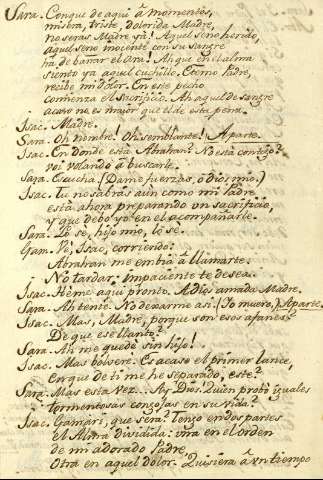 Sara. Conque de aqui á momentos,
misera, triste, dolorida Madre,
no seras Madre yá! Aquel seno herido,
aquel seno inocente con su sangre
ha de bañar el Ara! Ah que en el alma
siento ya aquel cuchillo. Eterno Padre,
recibe mi dolor. En este pecho
comienza el Sacrificio. Ah aquel de sangre
acaso no es maior que el de esta pena.
Isac. Madre.
Sara. Oh nombre! Oh semblante! Aparte.
Isac. En donde está Abrahan? No está contigo?
voi volando á buscarle.
Sara. Escucha. (Dame fuerzas, ô dios mio.)
Isac. Tu no sabrás aun como mi Padre
está ahora preparando un sacrificio,
y que debo yo en el acompañarle.
Sara. Lo sé, hijo mio, lo sé.
Gam. Vé, Isac, corriendo:
Abrahan me embia á llamarte.
No tardar: impaciente te desea.
Isac. Heme aqui pronto. A dios amada Madre.
Sara. Ah tente. No dexarme asi. (Yo muero.) Aparte.
Isac. Mas, Madre, porque son esos afanes?
De que ese llanto?
Sara. Ah me quedo sin hijo!
Isac. Mas bolveré. Es acaso el primer lance,
en que de ti me he separado, este?
Sara. Mas esta vez... Ay Dios! Quien probó iguales
tormentosas congojas en su vida?
Isac. Gamari, que será? Tengo en dos partes
el Alma dividida: una en el orden
de mi adorado Padre,
Otra en aquel dolor. Quisiera á un tiempo